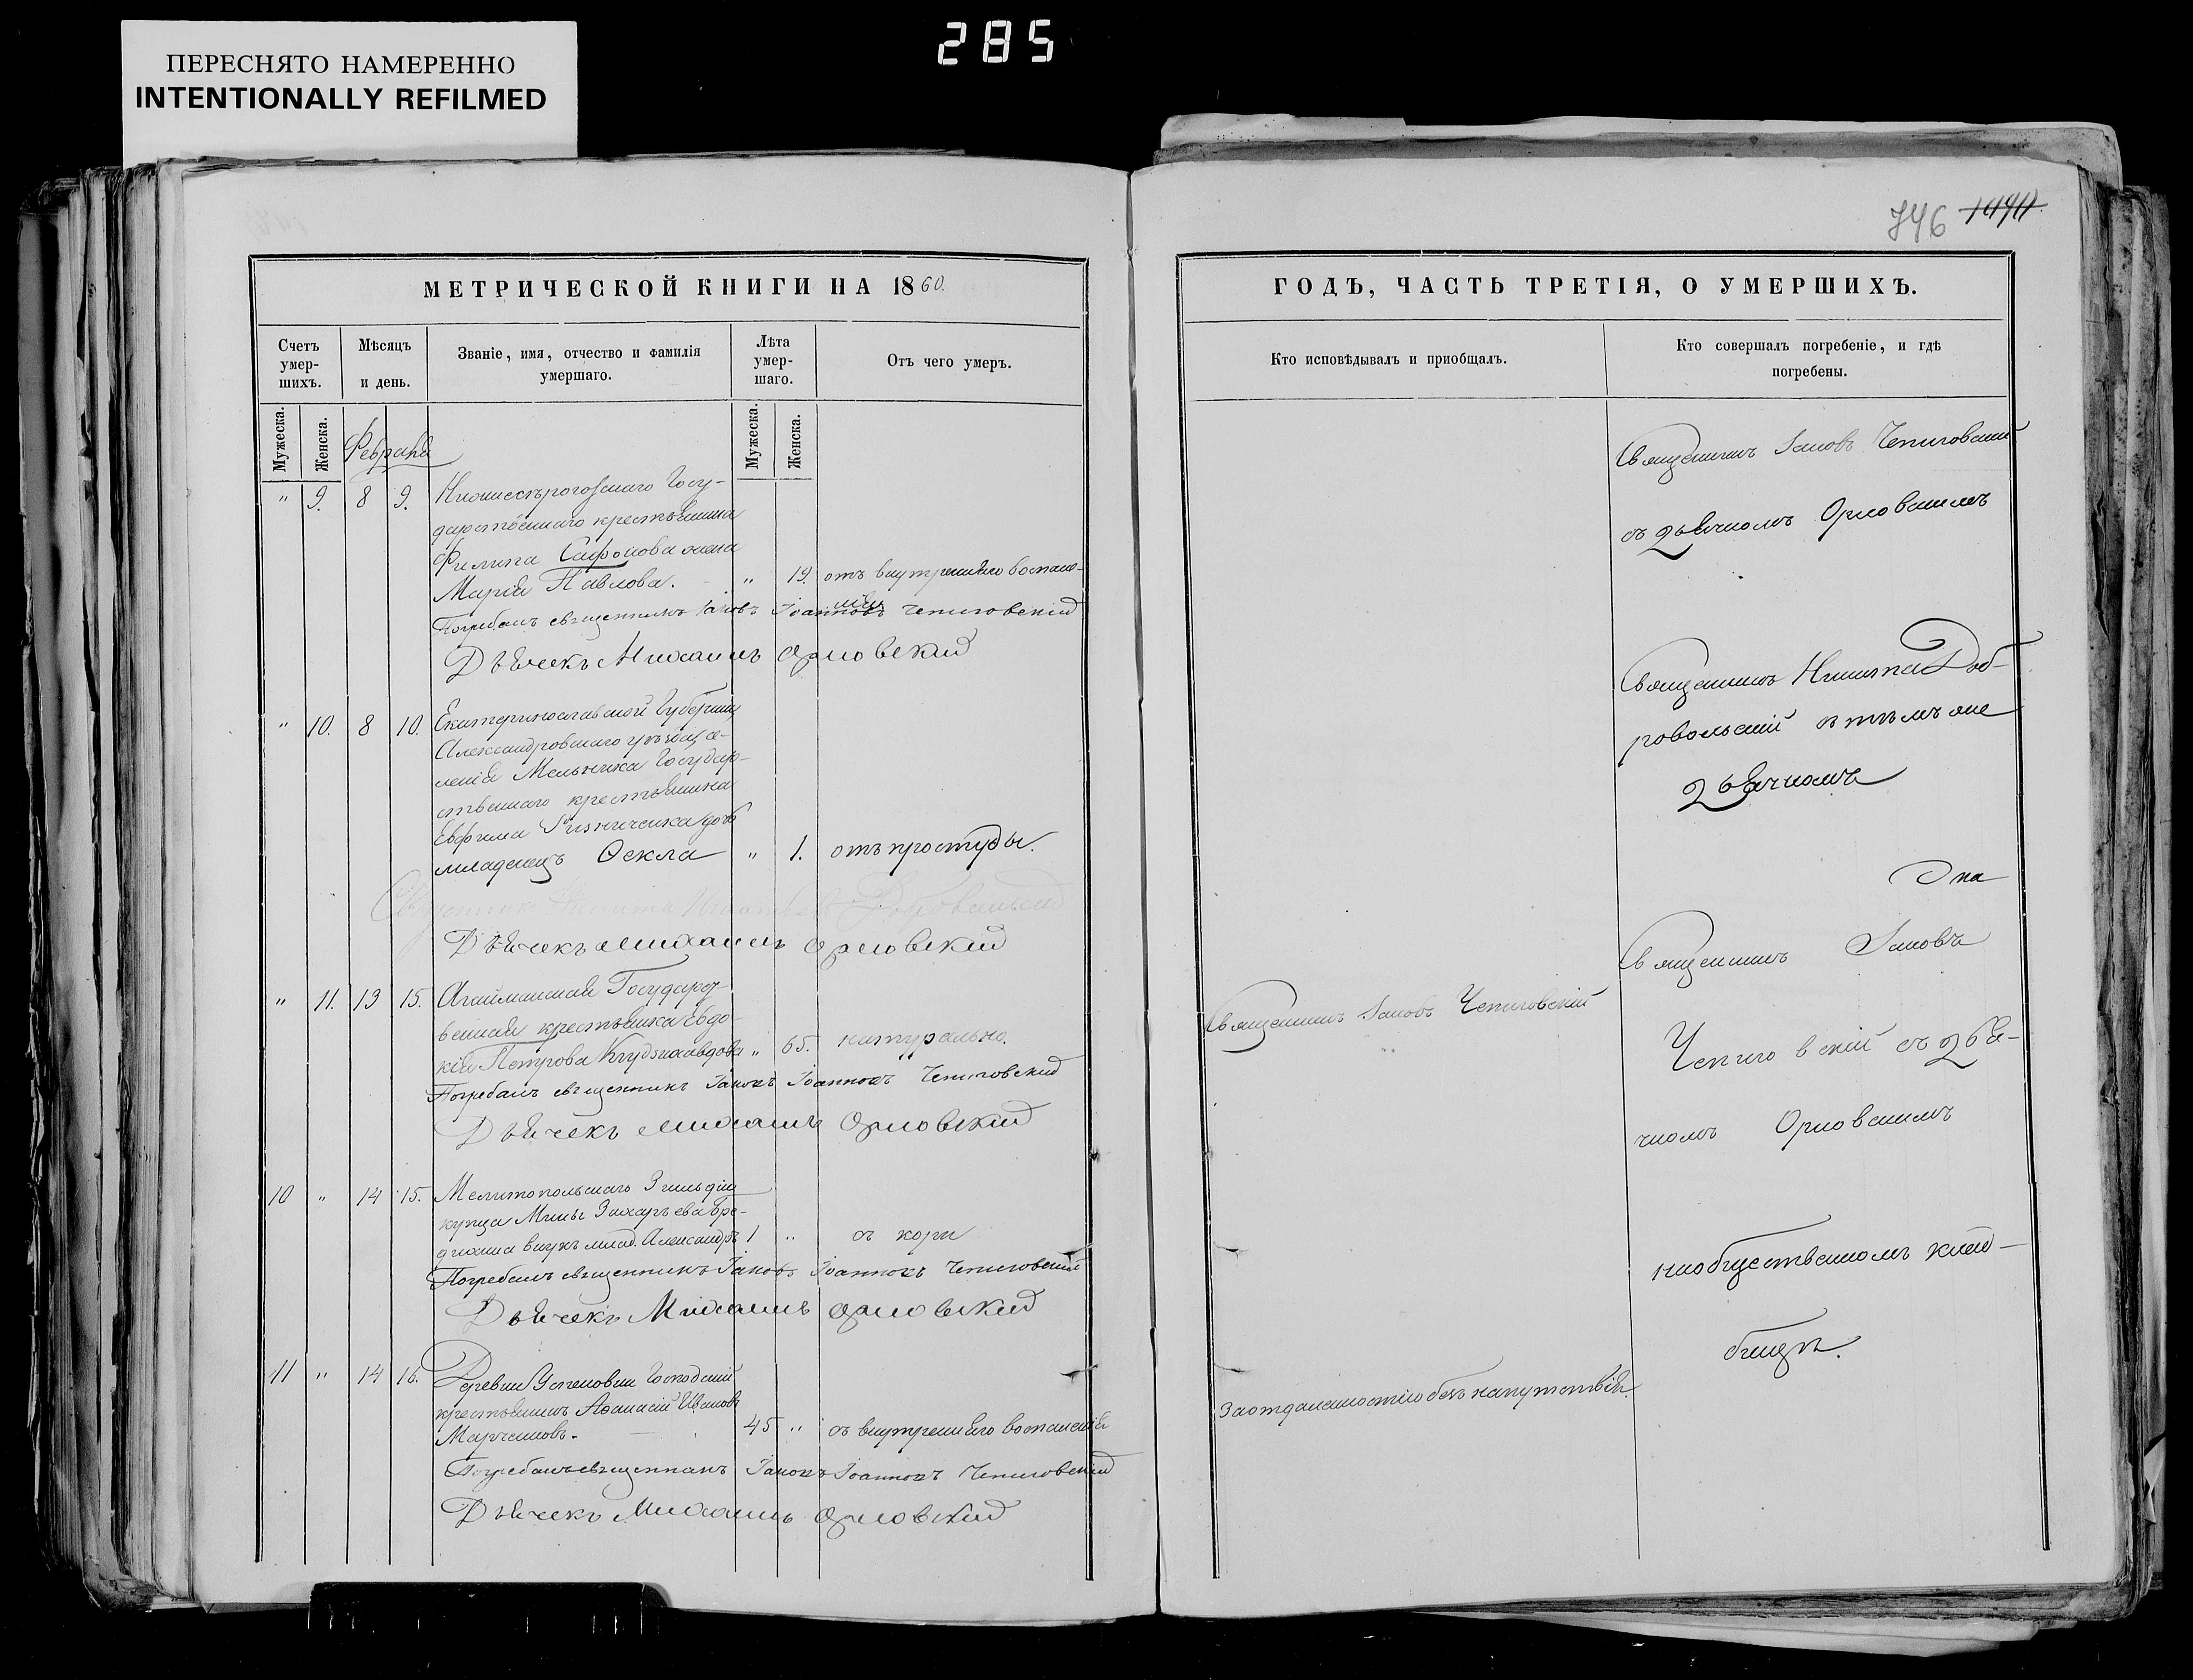 285
ПЕРЕСНЯТО НАМЕРЕННО
INTENTIONALLY REFILMED
746 1494
МЕТРИЧЕСКОЙ КНИГИ НА 1860.
Счетъ умер-шихъ.
Мѣсяцъ и день.
Званіе, имя, отчество и фамилія умершаго.
Лѣта умер-шаго.
Отъ чего умеръ.
Мужеска.
Женска.
Февраль
Мужеска.
Женска.
" 9. 8 9.
госу-
дарственнаго крестьянина
Филипа Сафонова жена
Марія Павлова. - " 19. отъ внутренняго воспале-
нія
Погребалъ священникъ Іаковъ Іоанновъ Чепиговскій
Дьячекъ Михаилъ Орловскій
" 10. 8 10. Екатеринославской губерніи
Александровскаго уѣзда се-
ленія государ-
ственнаго крестьянина
Евфима дочь
младенецъ Ѳекла " 1. отъ простуды.
Священникъ Никита Добровольскій
Дьячекъ Михаилъ Орловскій
" 11. 13 15. Агайманская Государст-
венная крестьянка Евдо-
кія Петрова вдова " 65. натурально.
Погребалъ священникъ Іаковъ Іоанновъ Чепиговскій
Дьячекъ Михаилъ Орловскій
10 " 14 15. Мелитопольскаго 3 гильдіи
купца Мины Захарьева
внукъ млад. Александръ 1 " отъ кори
Погребалъ священникъ Іаковъ Іоанновъ Чепиговскій
Дьячекъ Михаилъ Орловскій
11 " 14 16. Деревни Успеновки Господскій
крестьянинъ Аѳанасій Ивановъ
Марченковъ. 45 " отъ внутренняго воспаленія
Погребалъ священникъ Іаковъ Іоанновъ Чепиговскій
Дьячекъ Михаилъ Орловскій
ГОДЪ, ЧАСТЬ ТРЕТІЯ, О УМЕРШИХЪ.
Кто исповѣдывалъ и приобщалъ.
Кто совершалъ погребеніе, и гдѣ погребены.
Священникъ Іаковъ Чепиговскій
съ дьячкомъ Орловскимъ
Священникъ Никита Доб-
ровольскій съ тѣмъ же
дьячкомъ
Священникъ Іаковъ
Священникъ Іаковъ Чепиговскій
Чепиговскій съ дья-
чкомъ Орловскимъ
на общественномъ клад-
бищѣ.
За отдаленностію безъ напутствія.